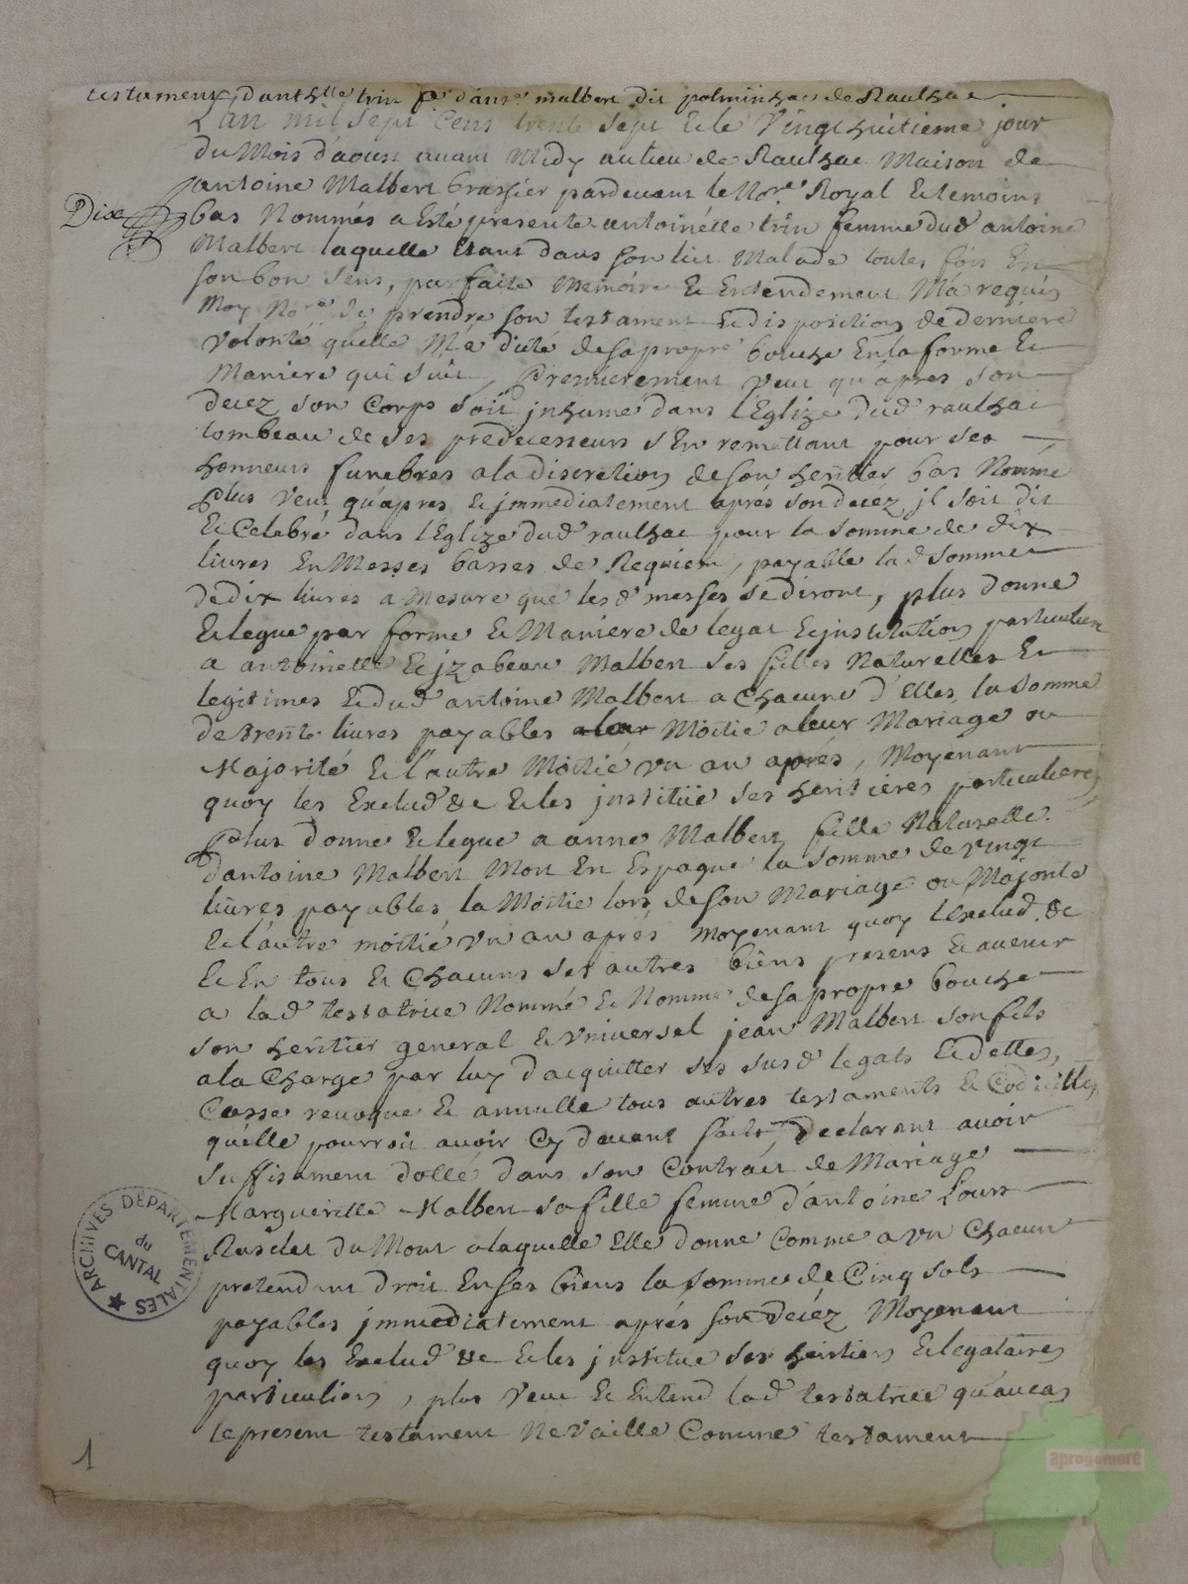 testament d'anth.lle trin f.e d'an.ne malbert dit polminhac de Raulhac
L'an mil sept Cens trente sept & le Vingt huitieme jour
Du Mois daoust avant Midy au lieu de Raulhac Maison de
antoine Malbert brassier pardevant le No.re Royal & temoins
Dixe
bas Nommés a Esté presente antoinette trin femme dud antoine
Malbert laquelle Etant dans son lit Malade toutes fois En
son bon sens, parfaite Memoire & Entendement M'a requis
Moy No.re de prendre son testament & disposition de derniere
Volonté quelle M'a dicté de sa propre bouche En la forme &
Maniere qui suit, Premierement Veut qu'apres son
decez son Corps soit jnhumé dans l'Eglize dud raulhac
tombeau de ses predecesseurs s'En remettant pour ses
honneurs funebres a la discretion de son heritier bas Nommé
Plus Veut qu'apres & jmmediatement aprés son decez jl soit dit
& Celebré dans l'Eglize dud raulhac pour la somme de dix
livres En Messes basses de Requiem, payable lad somme
de dix livres a Mesure que lesd messes se diront, plus donne
& legue par forme & Maniere de legat & jnstitution particuliere
a antoinette & jzabeau Malbert ses filles Naturelles &
legitimes & dud antoine Malbert a Chacune d'Elles la somme
de trente livres payables a leur Moitié a leur Mariage ou
Majorité & l'autre Moitié vn an aprés, Moyenant
quoy les Exclud &c & les jnstituë ses heritieres particulieres
Plus donne & legue a anne Malbert fille Naturelle
d'antoine Malbert Mort En Espagne la somme de vingt
livres payables la Moitié lors de son Mariage ou Majorité
& l'autre moitié vn an aprés Moyenant quoy l'Exclud &c
& En tous & Chacuns ses autres biens presens & avenir
a lad testatrice Nommé & Nomme de sa propre bouche
son heritier general & vniversel jean Malbert son fils
a la Charge par luy d'acquitter ses susd legats & dettes,
Casse revoque & annulle tous autres testaments & Codicilles
quelle pourroit avoir Cy devant faits, Declarant avoir
suffisament dotté dans son Contract de Mariage
Marguerite Malbert sa fille femme d'antoine Lours
du Mont a laquelle Elle donne Comme a vn Chacun
pretendant Droit En ses biens la somme de Cinq sols
payables jmmediatement aprés son decéz Moyenant
quoy les Exclud &c & les jnstitue ses heritiers & legataires
particuliers, plus Veut & Entend lad testatrice qu'au cas
le present testament Ne Vaille Comme testament
1
ARCHIVES DEPARTEMENTALES
du
CANTAL
aprogemere